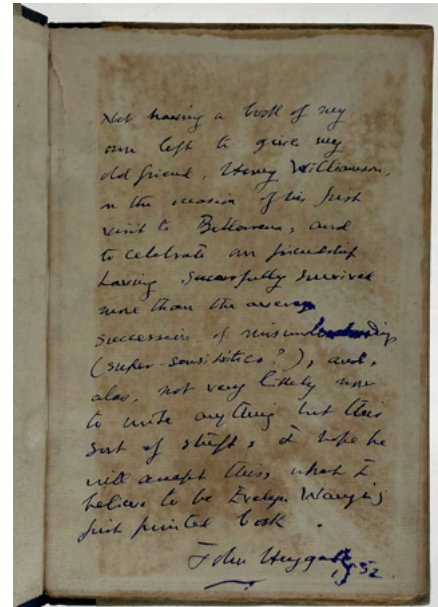 Not having a book of my
own left to give my
old friend, Henry Williamson,
on the occasion of his first
visit to Bellarena, and
to celebrate our friendship
having successfully survived
more than the average
succession of misunderstandings
(super-sensibitics?), and,
also, not very likely now
to write anything but this
sort of stuff, I hope he
will accept this, what I
believe to be Evelyn Waugh's
first printed book.
John Heygate
1952.